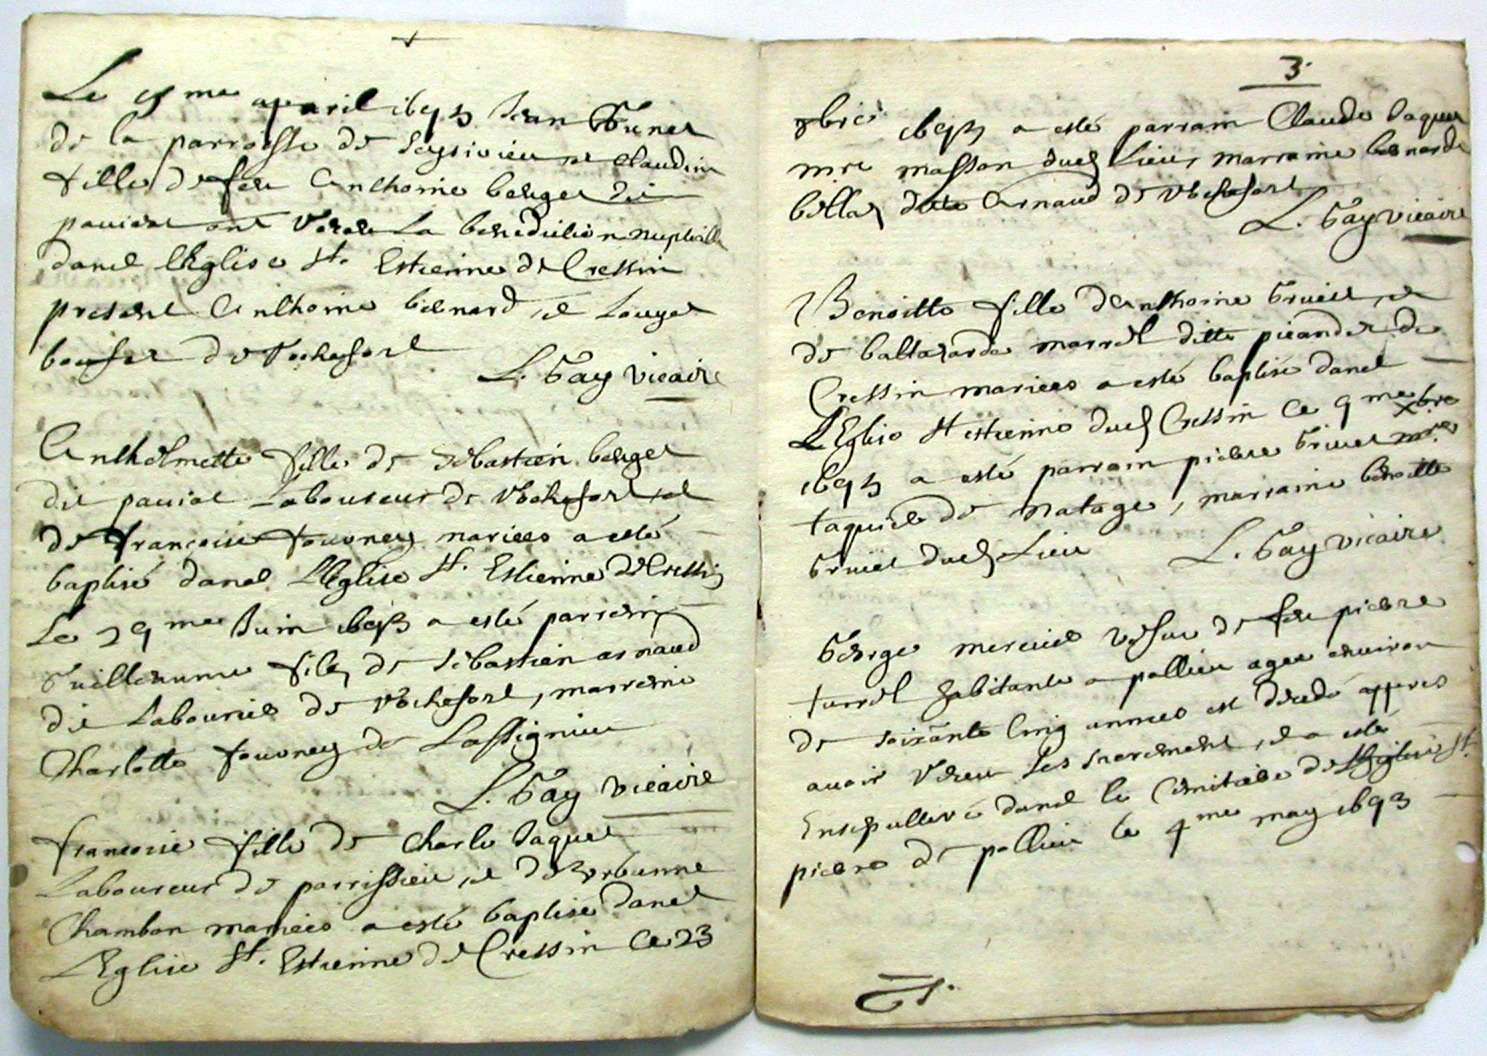 Le 15me apvril 1693 Jean
de la parroisse de Seyssieu et Claudine
fille de feu Anthoine berger dit
pauiot ont receu La benediction nuptialle
dans L'Eglise St. Estienne de Cressin
present Anthoine bernard, et Louys
de Rochefort
L. Gay vicaire
Anthelmette fille de Sebastien berger
dit pauiot Laboureur de Rochefort et
de francoise fouvney mariees a esté
baptisé dans L'Eglise St. Estienne de Cressin
Le 29me Juin 1693 a esté parrein
Guillaume fils de Sebastien arnaud
dit Labourier de Rochefort, marreine
Charlotte fouvney de Lassignieu
L. Gay vicaire
francoise fille de Charle Jaquet
Laboureur de parrissieu, et de urbanne
Chambon mariees a esté baptise dans
L'Eglise St. Estienne de Cressin Ce 23
3.
8bre 1693 a esté parrain Claude Jaquet
mre masson dud Lieu, marraine bernarde
billar ditte Arnaud de Rochefort
L. Gay vicaire
Benoitte fille d'Anthoine bruet, et
de baltazarde marrel ditte picandet de
Cressin mariees a esté baptisé dans
L'Eglise St estienne dud Cressin Ce 9me xbre
1693 a esté parrain pierre bruet mre
de Natage, marraine benoitte
bruet dud Lieu L. Gay vicaire
George mercier vefue de feu pierre
turrel habitante a pollieu agee enuiron
de soixante Cinq annees est decedé appres
auoir receu Les sacrements, et a esté
Ensepulturé dans le Cimitiere de L'Eglise St.
pierre de pollieu le 4me may 1693